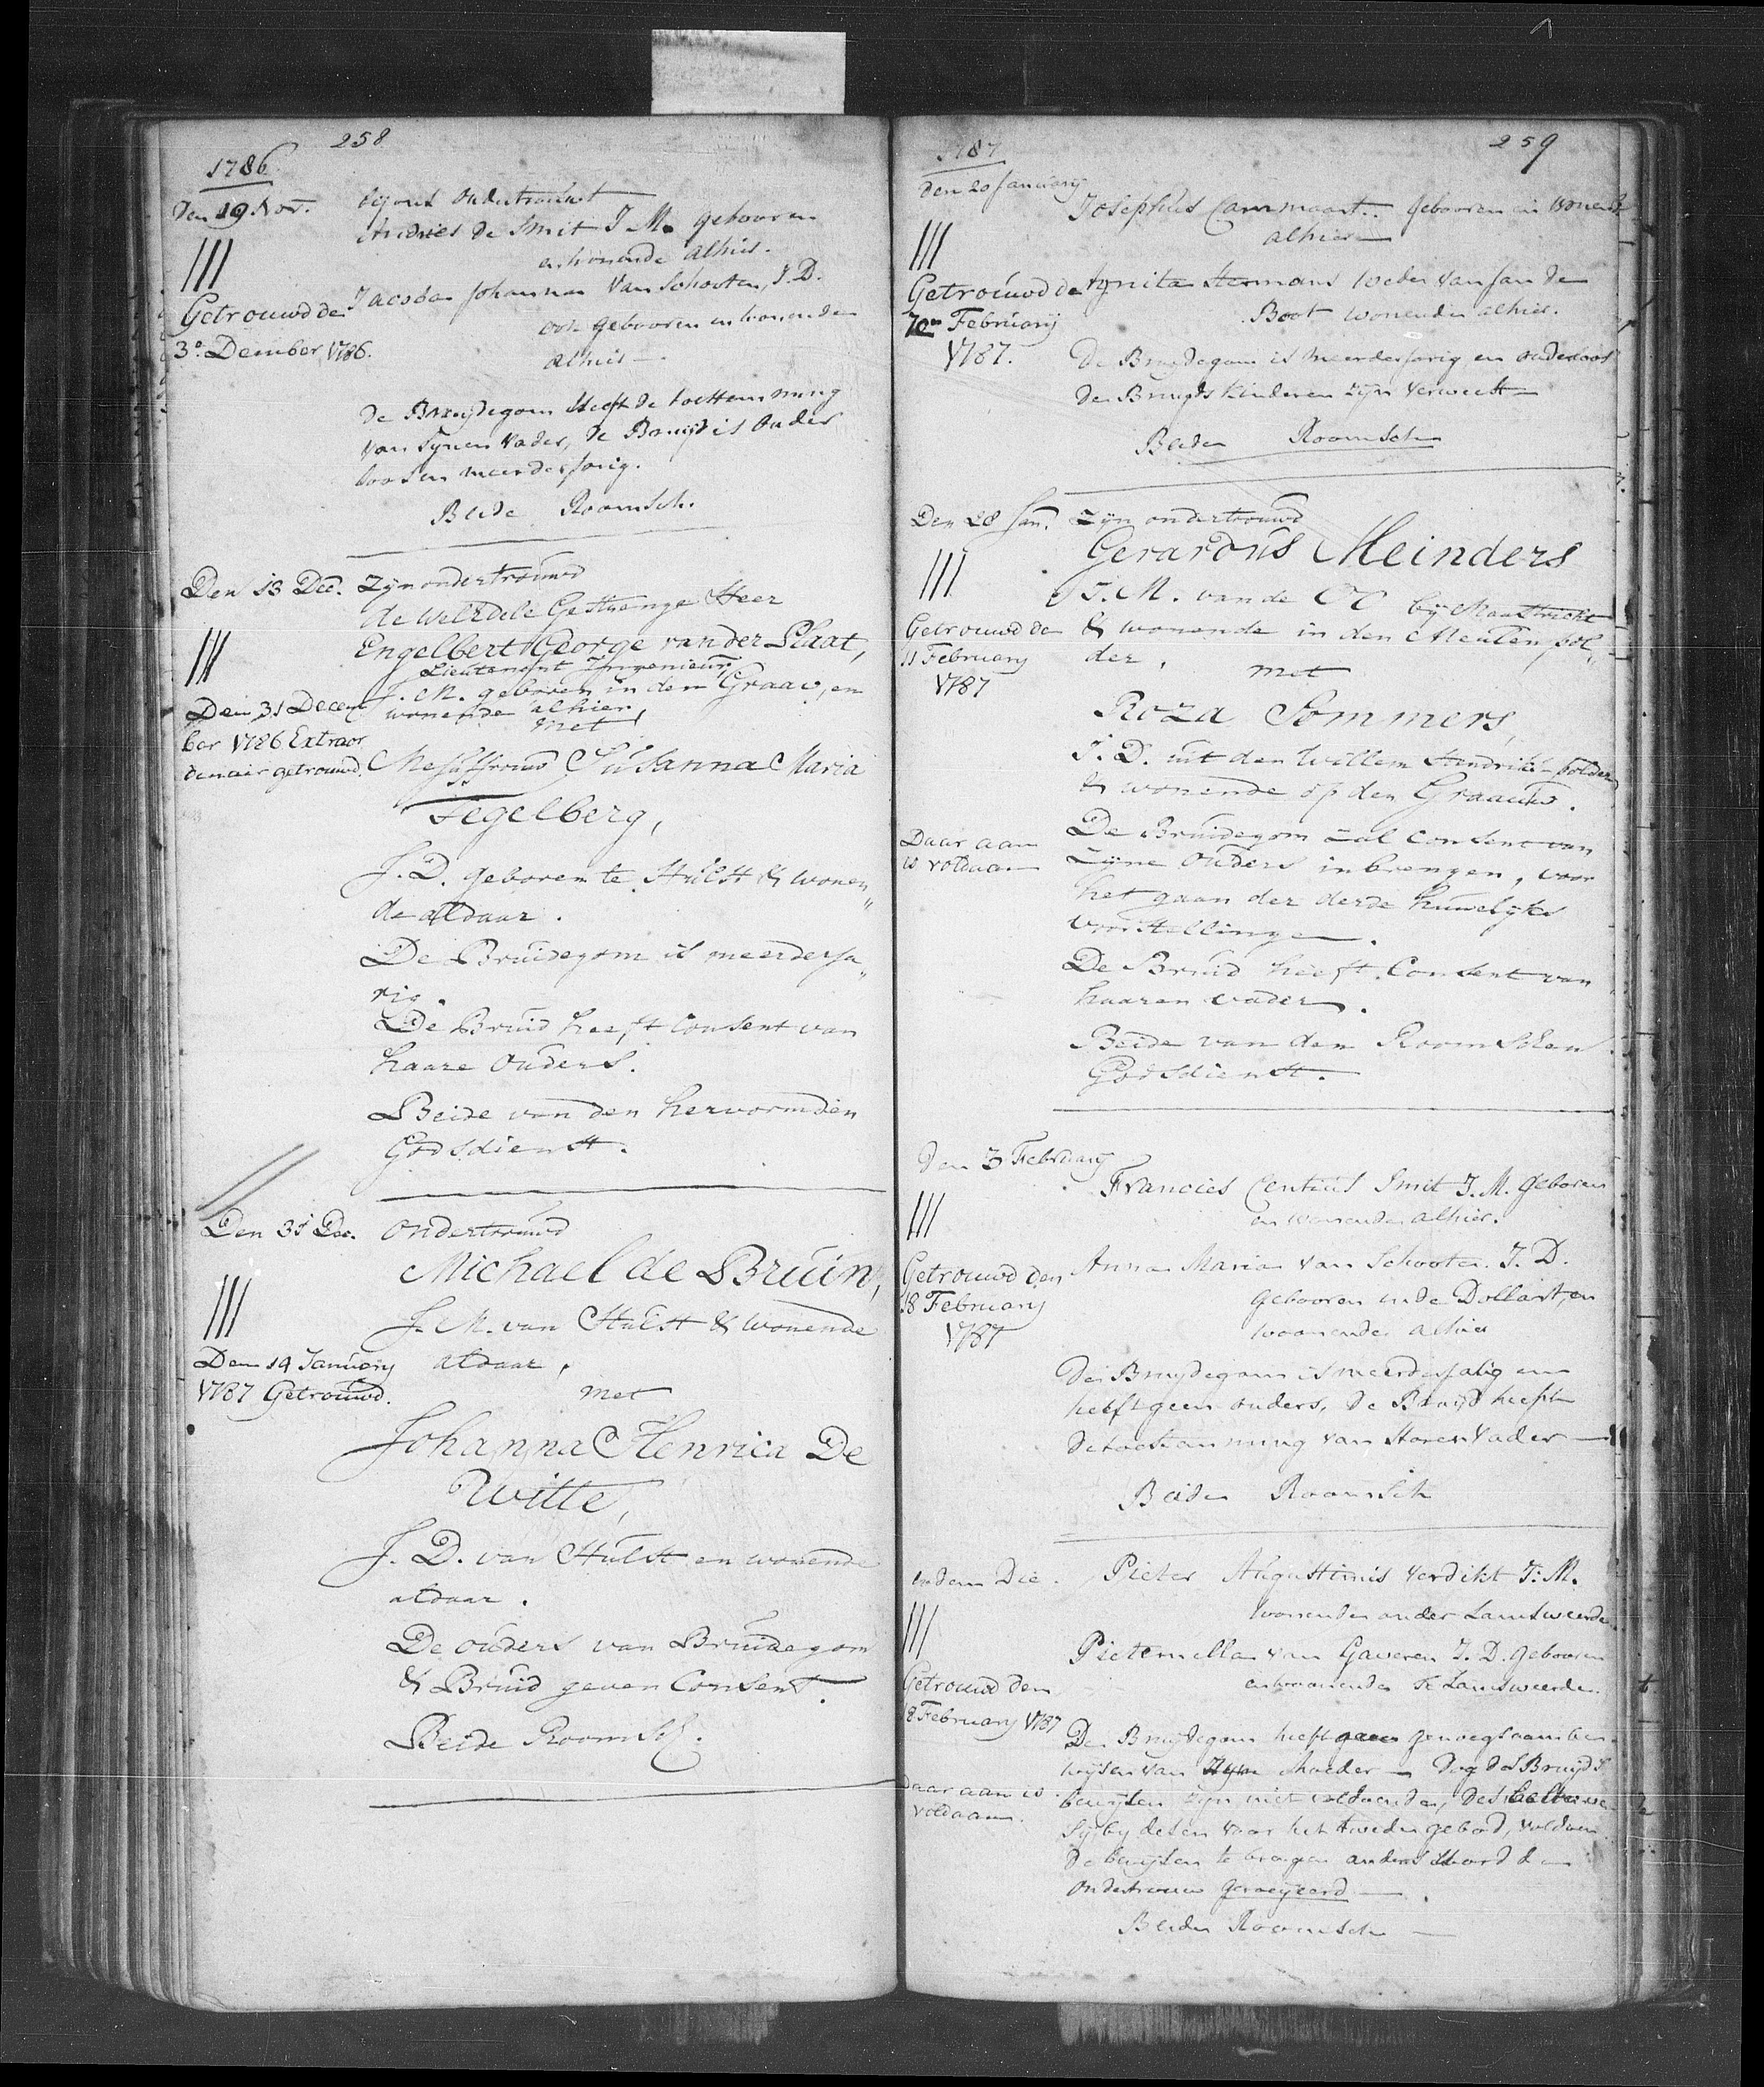 258
1786
den 19 Nov. bij ons ondertrouwt
Andries de Smit J. M. gebooren
en wonende alhier.
III
Getrouwd de
3e Dember 1786.
Jacoba Johanna Van Schooten, J. D.
ook gebooren en wonende
alhier —
de Bruijdegom Heeft de toestemming
van Synen Vader, de Bruijd is Ouder
loos en meerderjarig.
Beide Roomsch.
Den 13 Dec. Zijn ondertrouwd
de WelEdele Gestrenge Heer
Engelbert George van der Plaat,
Lieutenant Ingenieur,
J. M. geboren in den Graav, en
wonende alhier,
met
III
Den 31 Decem
ber 1786 Extraor
denair getrouwd.
Mejuffrouw Susanna Maria
Tegelberg,
J. D. geboren te Hulst & wonen„
de aldaar.
De Bruidegom is meerderja„
rig.
De Bruid heeft Consent van
haare Ouders.
Beide van den hervormden
Godsdienst.
Den 31 Dec. Ondertrouwd
Michael de Bruin,
J. M. van Hulst & wonende
aldaar,
met
III
Den 14 January
1787 Getrouwd.
Johanna Henrica De
Witte,
J. D. van Hulst en wonende
aldaar.
De ouders van Bruidegom
& Bruid geven Consent.
Beide Roomsch.
259
1787
den 20 January
Josephus Cammaart.. gebooren en wonende
alhier —
III
Getrouwd de
February
1787.
Agnita Hermans weder van Jan de
Boot wonende alhier.
De Bruijdegom is meerderjarig en ouderloos
de Bruijds kinderen zijn verweest —
Beide Roomsch
Den 28 Jan. Zijn ondertrouwd
Gerardus Meinders
J. M. van de bij Maastricht
& wonende in den Meulenpol„
der,
met
III
Getrouwd de
11 February
1787
Roza Sommers,
J. D. uit den Willem Hendriks-polder
& wonende op den Graauw.
De Bruidegom zal consent van
zijne Ouders inbrengen, voor
het gaan der derde huwelijks
voorstellingen.
Daar aan
is voldaan
De Bruid heeft Consent van
haaren vader.
Beide van den Roomschen
Godsdienst.
Den 3 February
Francies Smit J. M. geboren
en wonende alhier.
III
Getrouwd den
18 February
1787
Anna Maria van Schooten J. D.
gebooren in de Dollart, en
woonende alhier
De Bruijdegom is meerderjarig en
heeft geen ouders, de Bruijd heeft
de toestemming van Haren Vader —
Beide Roomsch
Pieter Augustinus Verdikt J. M.
wonende onder Lamsweerde
III
Getrouwd den
18 February 1787
Pieternella van Gaveren J. D. gebooren
en wonende te Lamsweerde.
De Bruijdegom heeft genoegsaam be
wijsen van Moeder — dog de Bruijds
bewijsen zijn niet voldoende,
Daar aan is
voldaan.
sij bij desen voor het tweede gebod, voldoen
de bewijsen te brengen anders word de
ondertrouw
Beide Roomsch —